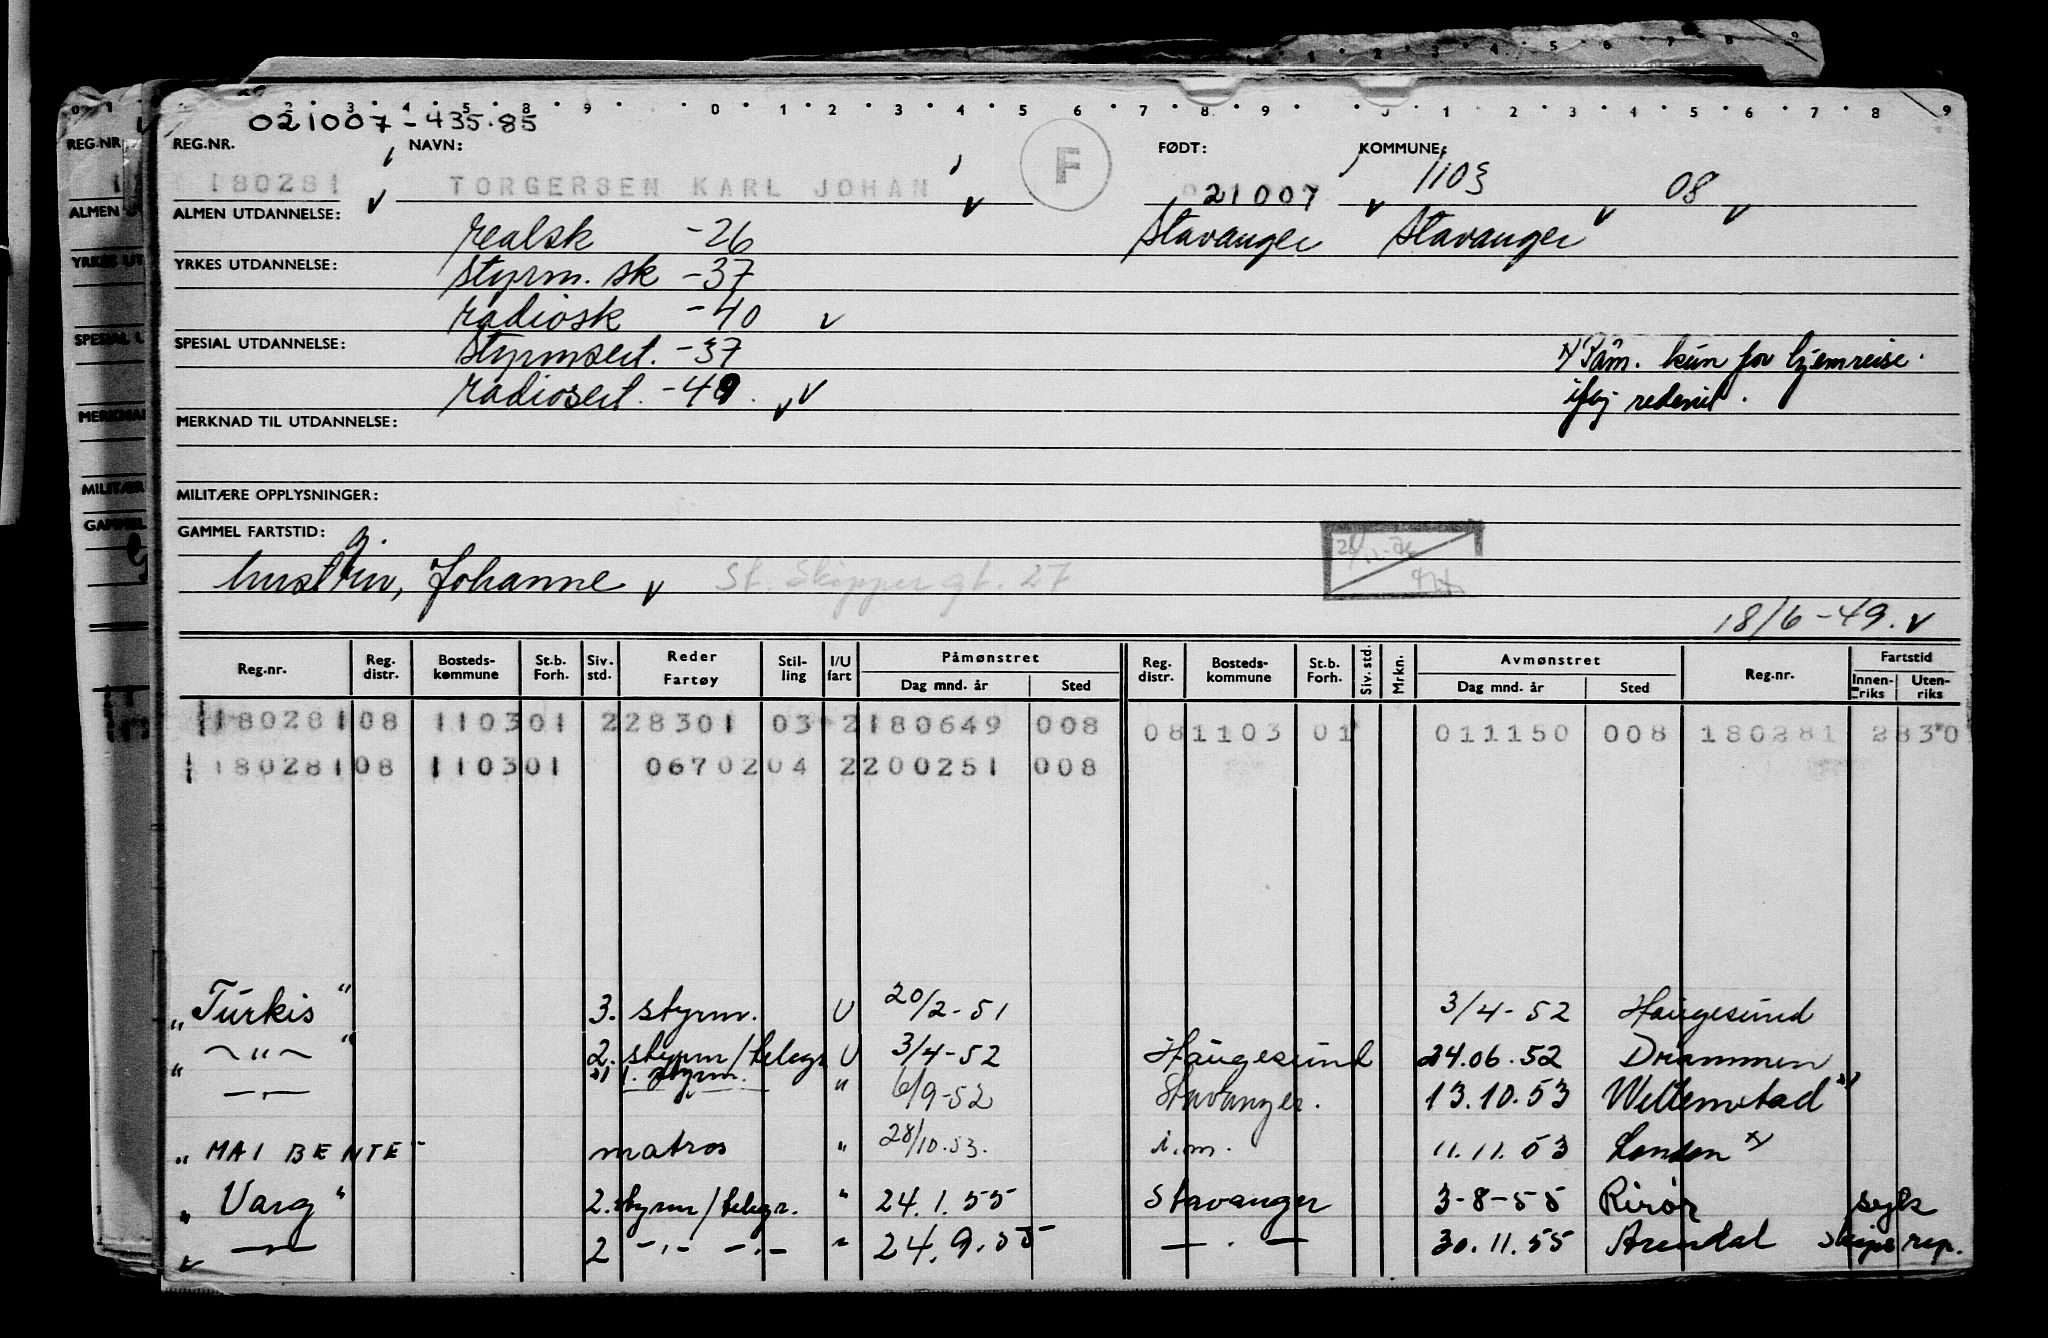 021007-435.85
REG.NR. NAVN: FØDT: KOMMUNE:
180281 TORGERSEN KARL JOHAN F 21007 1103 08
ALMEN UTDANNELSE: realsk -26 Stavanger Stavanger
YRKES UTDANNELSE: styrm. sk -37
radiosk -40
SPESIAL UTDANNELSE: styrmsert. -37 x) Påm. kun for hjemreise.
radiosert. -40 iflg rederiet.
MERKNAD TIL UTDANNELSE:
MILITÆRE OPPLYSNINGER:
GAMMEL FARTSTID: g.
hustru, Johanne St. Skipper gt. 27
18/6-49.
Reg.nr. Reg. distr. Bosteds- kommune St.b. Forh. Siv. std. Reder Fartøy Stil- ling I/U fart Påmønstret Dag mnd. år Sted Reg. distr. Bosteds- kommune St.b. Forh. Siv. std. Mrkn. Avmønstret Dag mnd. år Sted Reg.nr. Fartstid Innen- riks Uten- riks
180281 08 110301 228301 03 2180649 008 081103 01 011150 008 180281 2830
180281 08 110301 067020 4 2200251 008
"Turkis" 3. styrm. U 20/2-51 3/4-52 Haugesund
" -"- " 2. styrm/telegr U 3/4-52 Haugesund 24.06.52 Drammen
-"- 1. styrm. " 6/9-52 Stavanger. 13.10.53 Willemstad
"MAI BENTE" matros " 28/10.53. i.m. 11.11.53 London x)
"Varg" 2. styrm/telegr. " 24.1.55 Stavanger 3-8-55 Risør syk
-"- 2 -"- -"- " 24.9.55 -"- 30.11.55 Arendal skips rep.